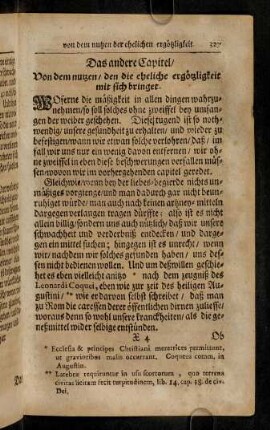 von dem nutzen der ehelichen ergötzligkeit. 327
Das andere Capitel/
Von dem nutzen/ den die eheliche ergötzligkeit
mit sich bringet.
WOferne die mäßigkeit in allen dingen wahrzu-
nehmen/ so soll solches ohne zweiffel bey umfan-
gen der weiber geschehen. Diese tugend ist so noth-
wendig/ unsere gesundheit zu erhalten/ und wieder zu
befestigen wann wir etwan solche verlohren/ daß/ im
fall wir uns nur ein wenig davon entfernen/ wir oh-
ne zweiffel in eben diese beschwerungen verfallen müs-
sen/ wovon wir im vorhergehenden capitel geredet.
Gleichwie/ wenn bey der liebes-begierde nichts un-
mäßiges vorgienge/ und man dadurch gar nicht beun-
ruhiget würde/ man auch nach keinen artzney-mitteln
dargegen verlangen tragen dürffte: also ist es nicht
allein billig/ sondern uns auch nützlich/ daß wir unsere
schwachheit und verderbniß entdecken/ und darge-
gen ein mittel suchen; hingegen ist es unrecht/ wenn
wir/ nachdem wir solches gefunden haben/ uns des-
sen nicht bedienen wollen. Und um deßwillen geschie-
het es eben vielleicht anitzo * nach dem zeugniß des
Leonardi Coquei, eben wie zur zeit des heiligen Au-
gustini/ ** wie er davon selbst schreibet/ daß man
zu Rom die caressen derer öffentlichen dirnen zuliesse/
woraus denn so wohl unsere kranckheiten/ als die ge-
gen mittel wider selbige entstünden.
X 4 Ob
* Ecclesia & principes Christiani meretrices permittunt,
ut gravioribus malis occurrant. Coqueus comm. in
Augustin.
** Latebre requiruntur in usu scortorum, quo terrena
civitas licitam fecit turpitudinem, lib. 14. cap. 18. de civ.
Dei.